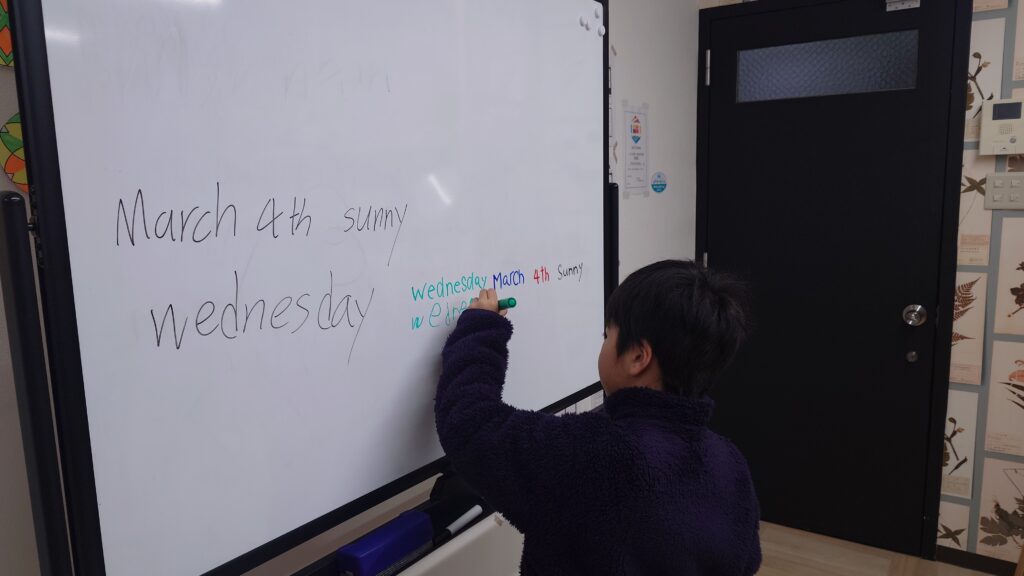 March 4th sunny
wednesday
wednesday March 4th Sunny